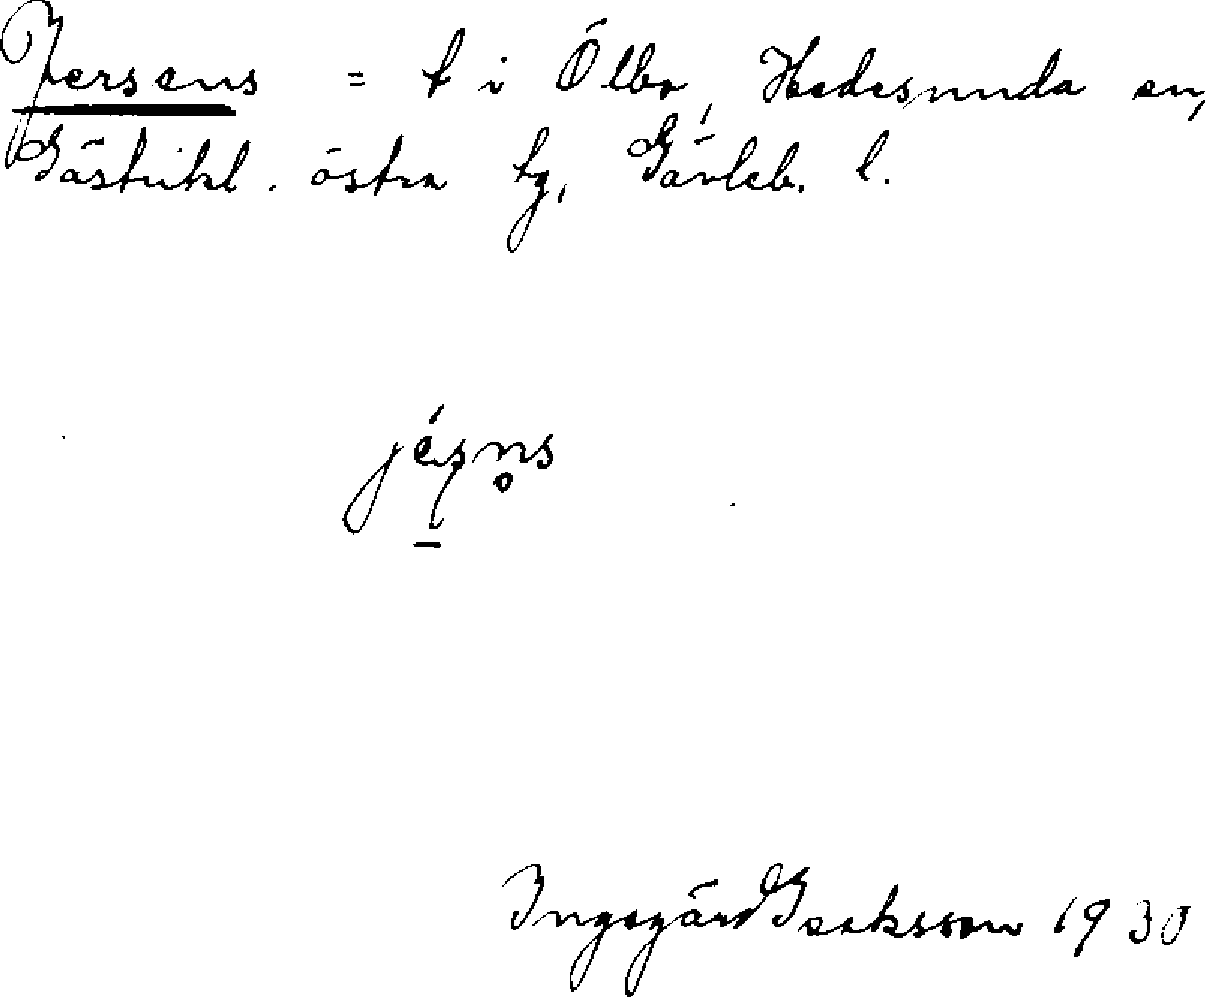 Jersens = t i Ölbo, Hedesunda sn,
Gästrikl. östra tg, Gävleb. l.
Ingegärd Isaksson 1930